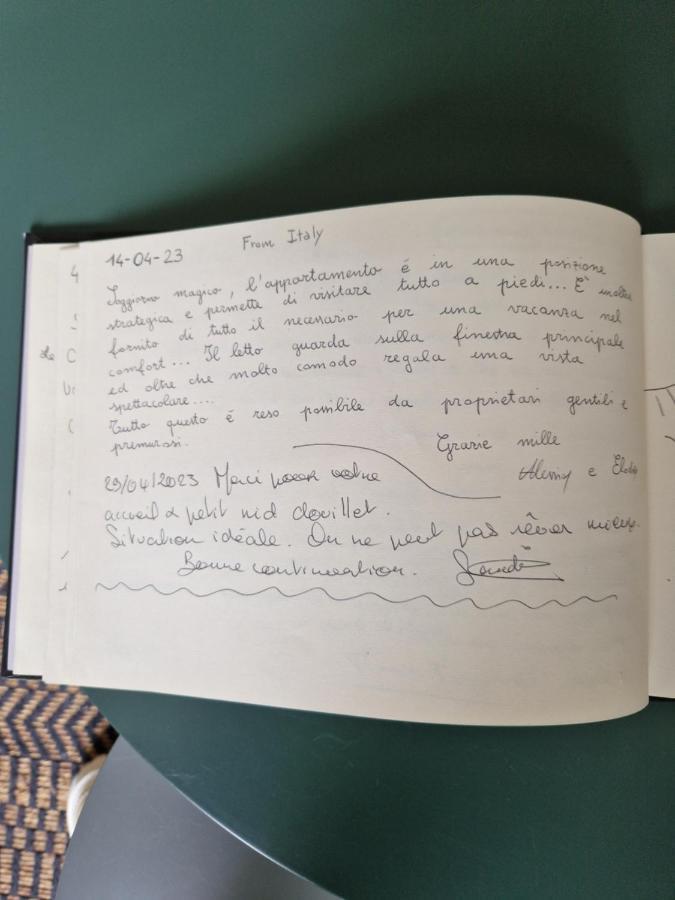 14-04-23 From Italy
Soggiorno magico, l'appartamento é in una posizione
strategica e permette di visitare tutto a piedi... È inoltre
fornito di tutto il necessario per una vacanza nel
comfort... Il letto guarda sulla finestra principale
ed oltre che molto comodo regala una vista
spettacolare....
Tutto questo é reso possibile da proprietari gentili e
premurosi.
Grazie mille
e
29/04/2023 Merci pour votre
accueil & petit nid douillet.
Situation idéale. On ne peut pas rêver mieux.
Bonne continuation.